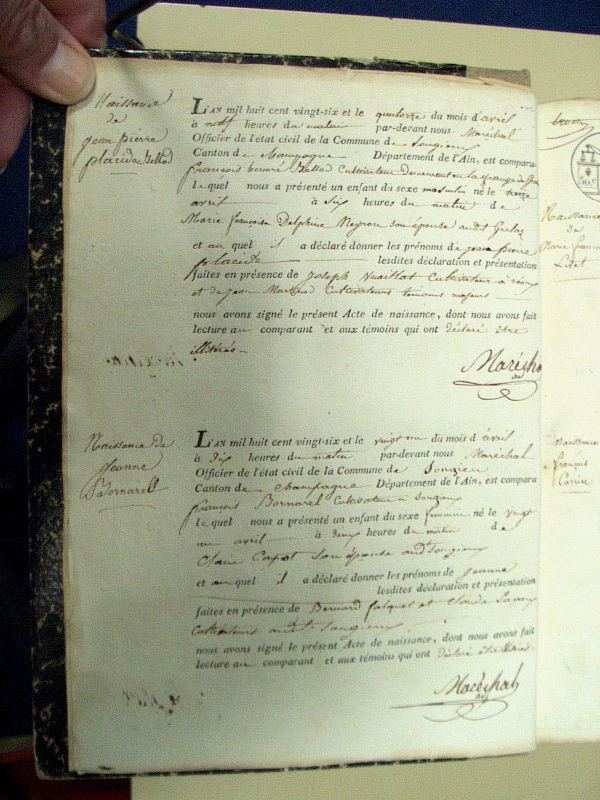 Naissance
de
jean pierre
placide Ballod
L'AN mil huit cent vingt-six et le quatorze du mois d'avril
à neuf heures du matin par-devant nous Maréchal
Officier de l'état civil de la Commune de Songieu
Canton de Champagne Département de l'Ain, est comparu
françois Ballod Cultivateur demeurant a la grange de
lequel nous a présenté un enfant du sexe masculin né le treize
avril à Six heures du matin de
Marie françoise Delphine Meyron son épouse audt
et au quel il a déclaré donner les prénoms de jean pierre
placide lesdites déclaration et présentation
faites en présence de joseph vuaillat Cultivateur à
et de jean Cultivateurs témoins majeurs
nous avons signé le présent Acte de naissance, dont nous avons fait
lecture au comparant et aux témoins qui ont déclaré être
illitérés
Maréchal
Naissance de
Jeanne
Bornarel
L'AN mil huit cent vingt-six et le vingt un du mois d'avril
à Dix heures du matin par-devant nous Maréchal
Officier de l'état civil de la Commune de Songieu
Canton de Champagne Département de l'Ain, est comparu
françois Bornarel Cultivateur à Songieu
lequel nous a présenté un enfant du sexe feminin né le vingt
un avril à deux heures du matin de
Claire son épouse audt Songieu
et au quel il a déclaré donner les prénoms de Jeanne
lesdites déclaration et présentation
faites en présence de Bernard et Claude
Cultivateurs audt Songieu
nous avons signé le présent Acte de naissance, dont nous avons fait
lecture au comparant et aux témoins qui ont déclaré être illitérés
Maréchal
Naissance
de
Marie
Naissance
françois